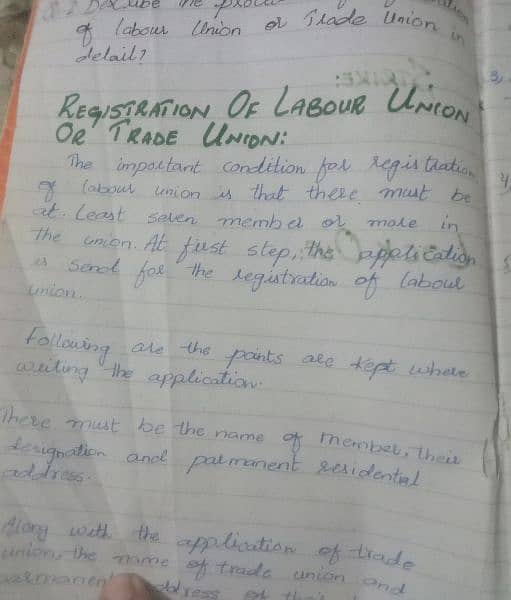 Describe the
of labour Union or Trade Union in
detail?
STRIKE:
REGISTRATION OF LABOUR UNION
OR TRADE UNION:
The important condition for registration
of labour union is that there must be
at. least seven member or more in
the union. At first step, the application
is send for the registration of labour
union.
Following are the points are kept where
writing the application.
There must be the name of member, their
designation and parmanent residental
address.
Along with the application of trade
union, the name of trade union and
parmanent address of their
3,
4,